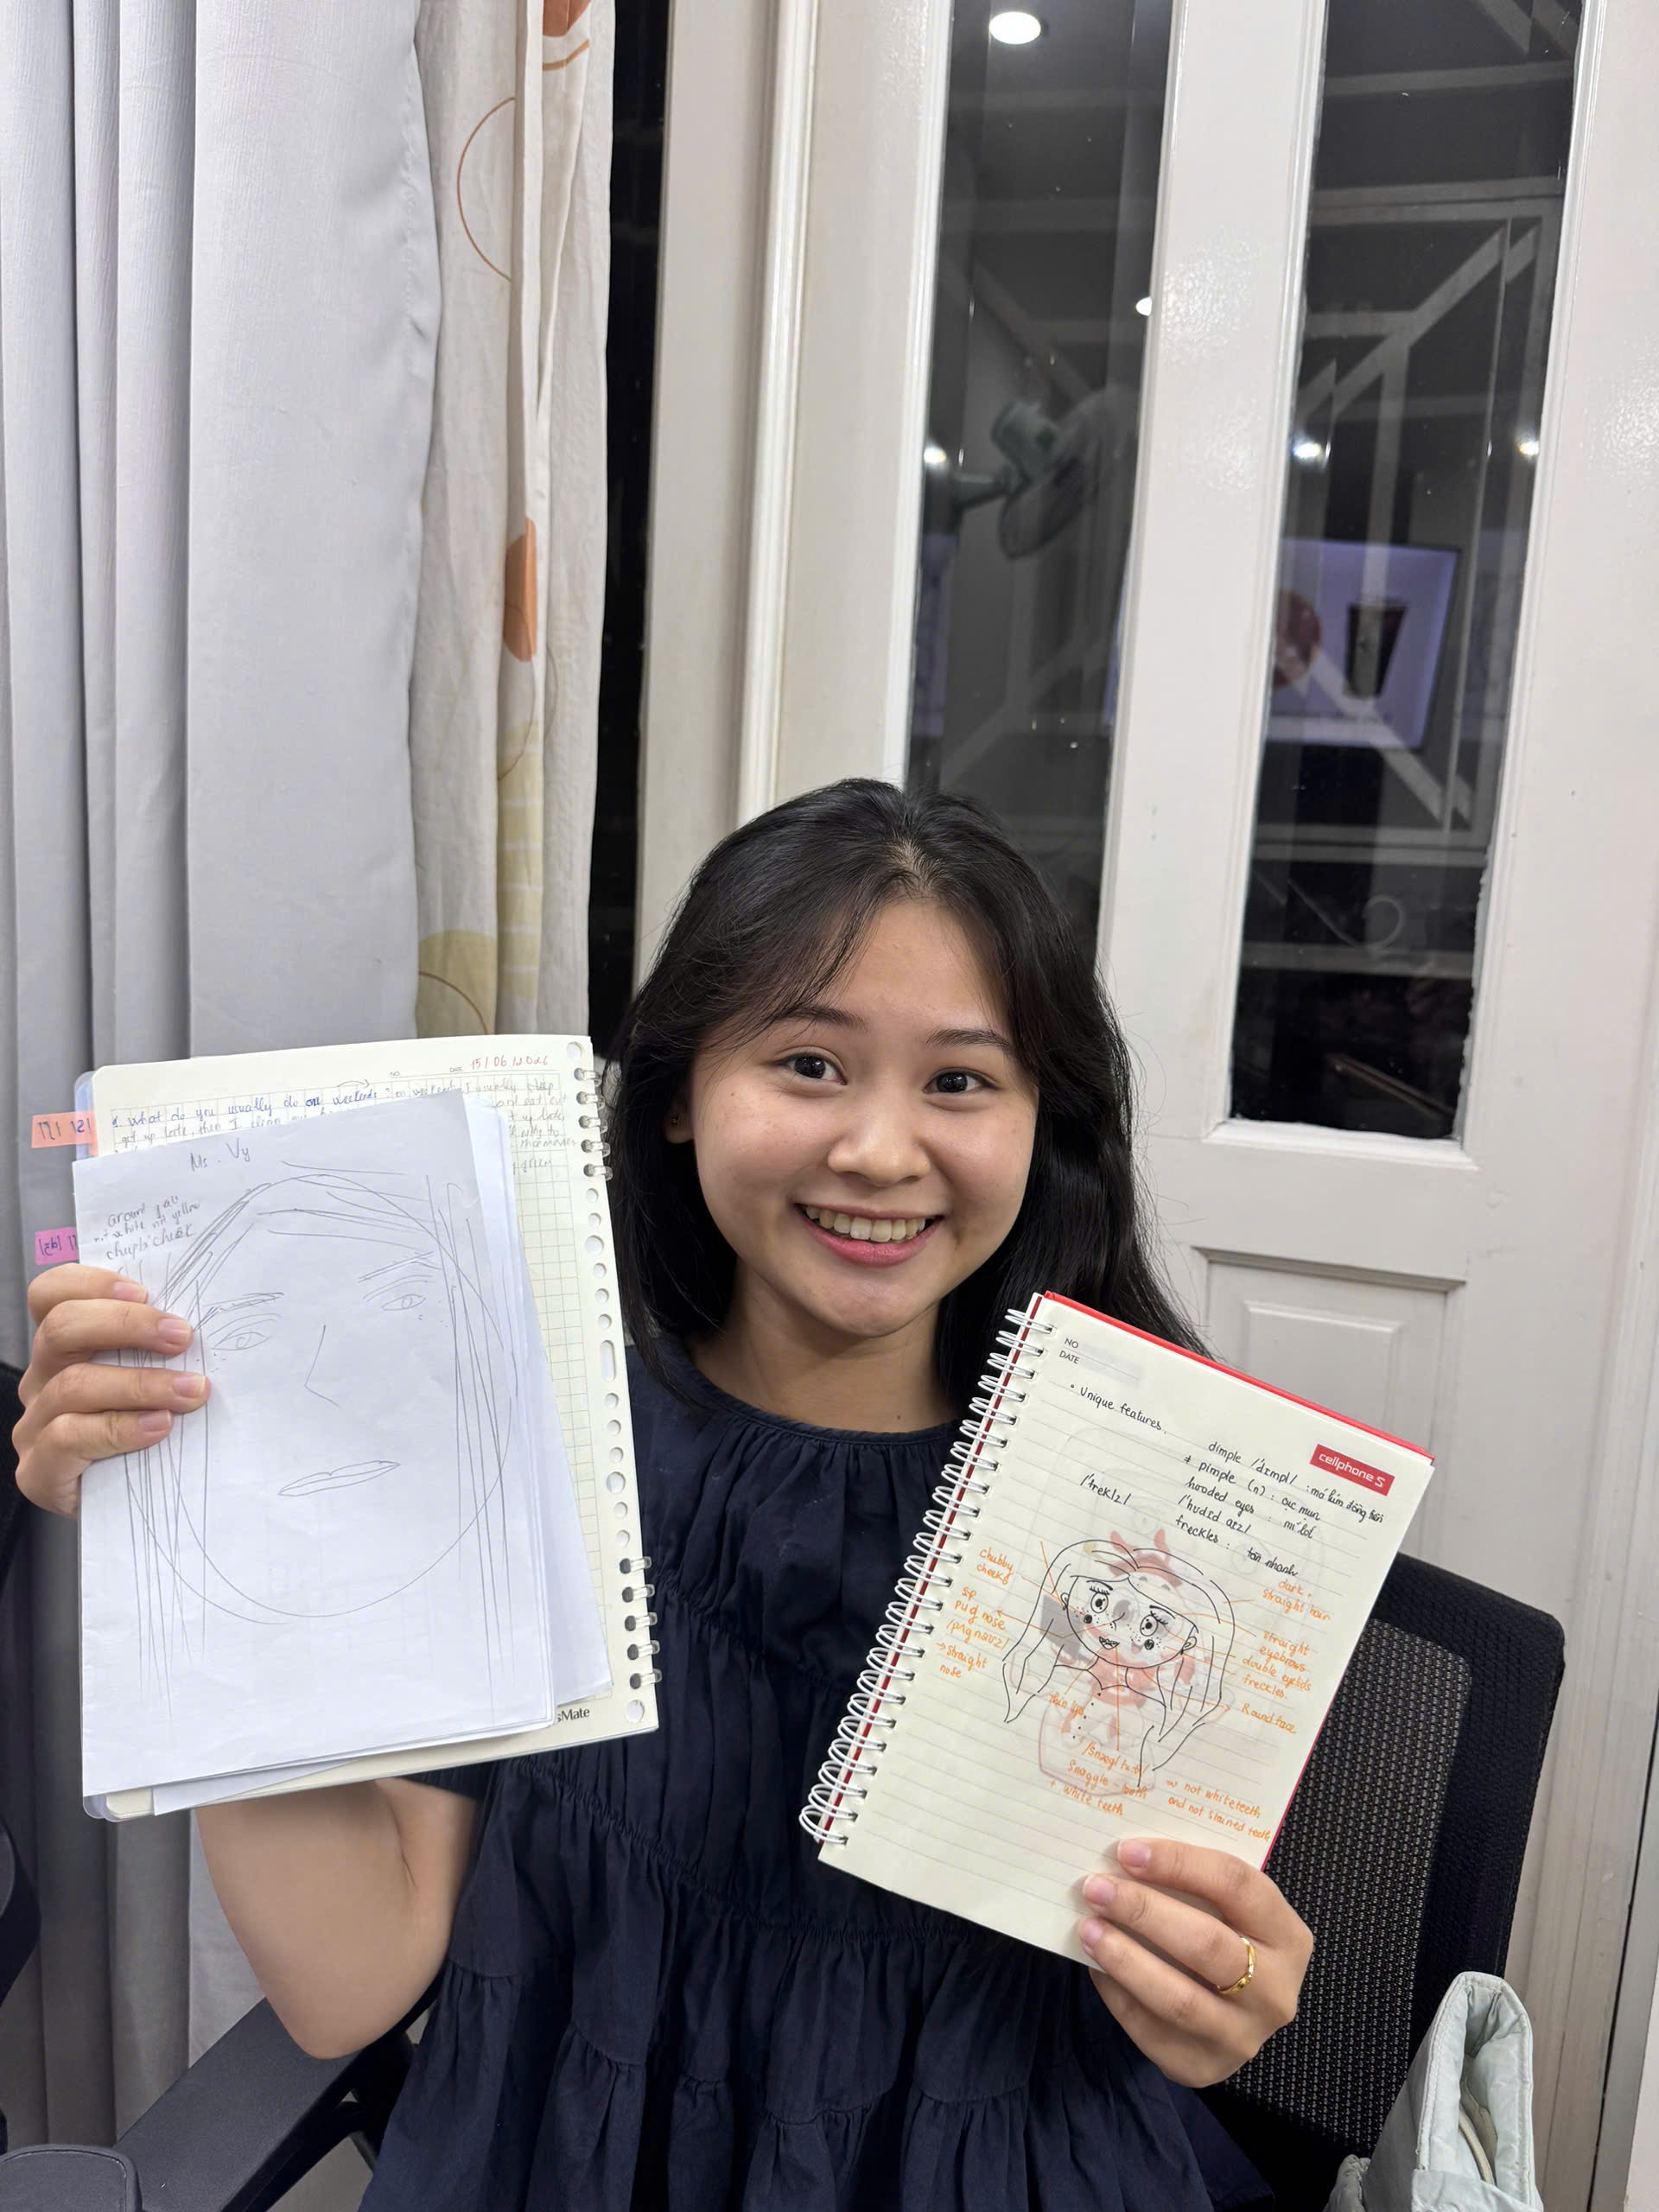 NO.
DATE 15/06/2026
* what do you usually do on weekends : on weekend, I usually sleep
and eat out
get up late, then I
171 121
Ms. Vy
Ground fac
not white not yellow
chupb cheek
sMate
NO
DATE
• Unique features.
cellphoneS
dimple /'dɪmpl/ : má lúm đồng tiền
≠ pimple (n) : cục mụn
hooded eyes : mí lót
/'hʊdɪd aɪz/
/'freklz/
freckles : tàn nhanh
chubby
cheeks
dark,
straight hair
sp
pug nose
/pʌg nəʊz/
→ straight
nose
straight
eyebrows
double eyelids
freckles
Round face
thin lips
/snægl tuːθ/
Snaggle - tooth
+ white teeth
not white teeth
and not stained teeth